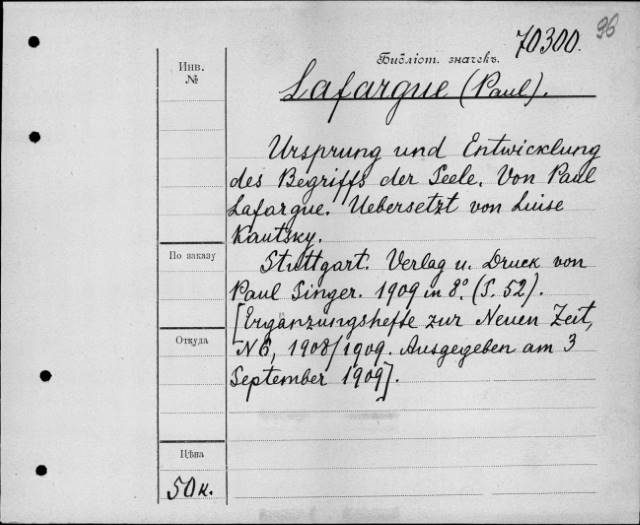 96
70300.
Инв.
№
Библіот. значекъ.
Lafargue (Paul).
Ursprung und Entwicklung
des Begriffs der Seele. Von Paul
Lafargue. Uebersetzt von Luise
Kautsky.
По заказу
Stuttgart. Verlag u. Druck von
Paul Singer. 1909 in 8º. (S. 52).
[Ergänzungshefte zur Neuen Zeit,
Откуда
N6, 1908/1909. Ausgegeben am 3
September 1909].
Цѣна
50 к.